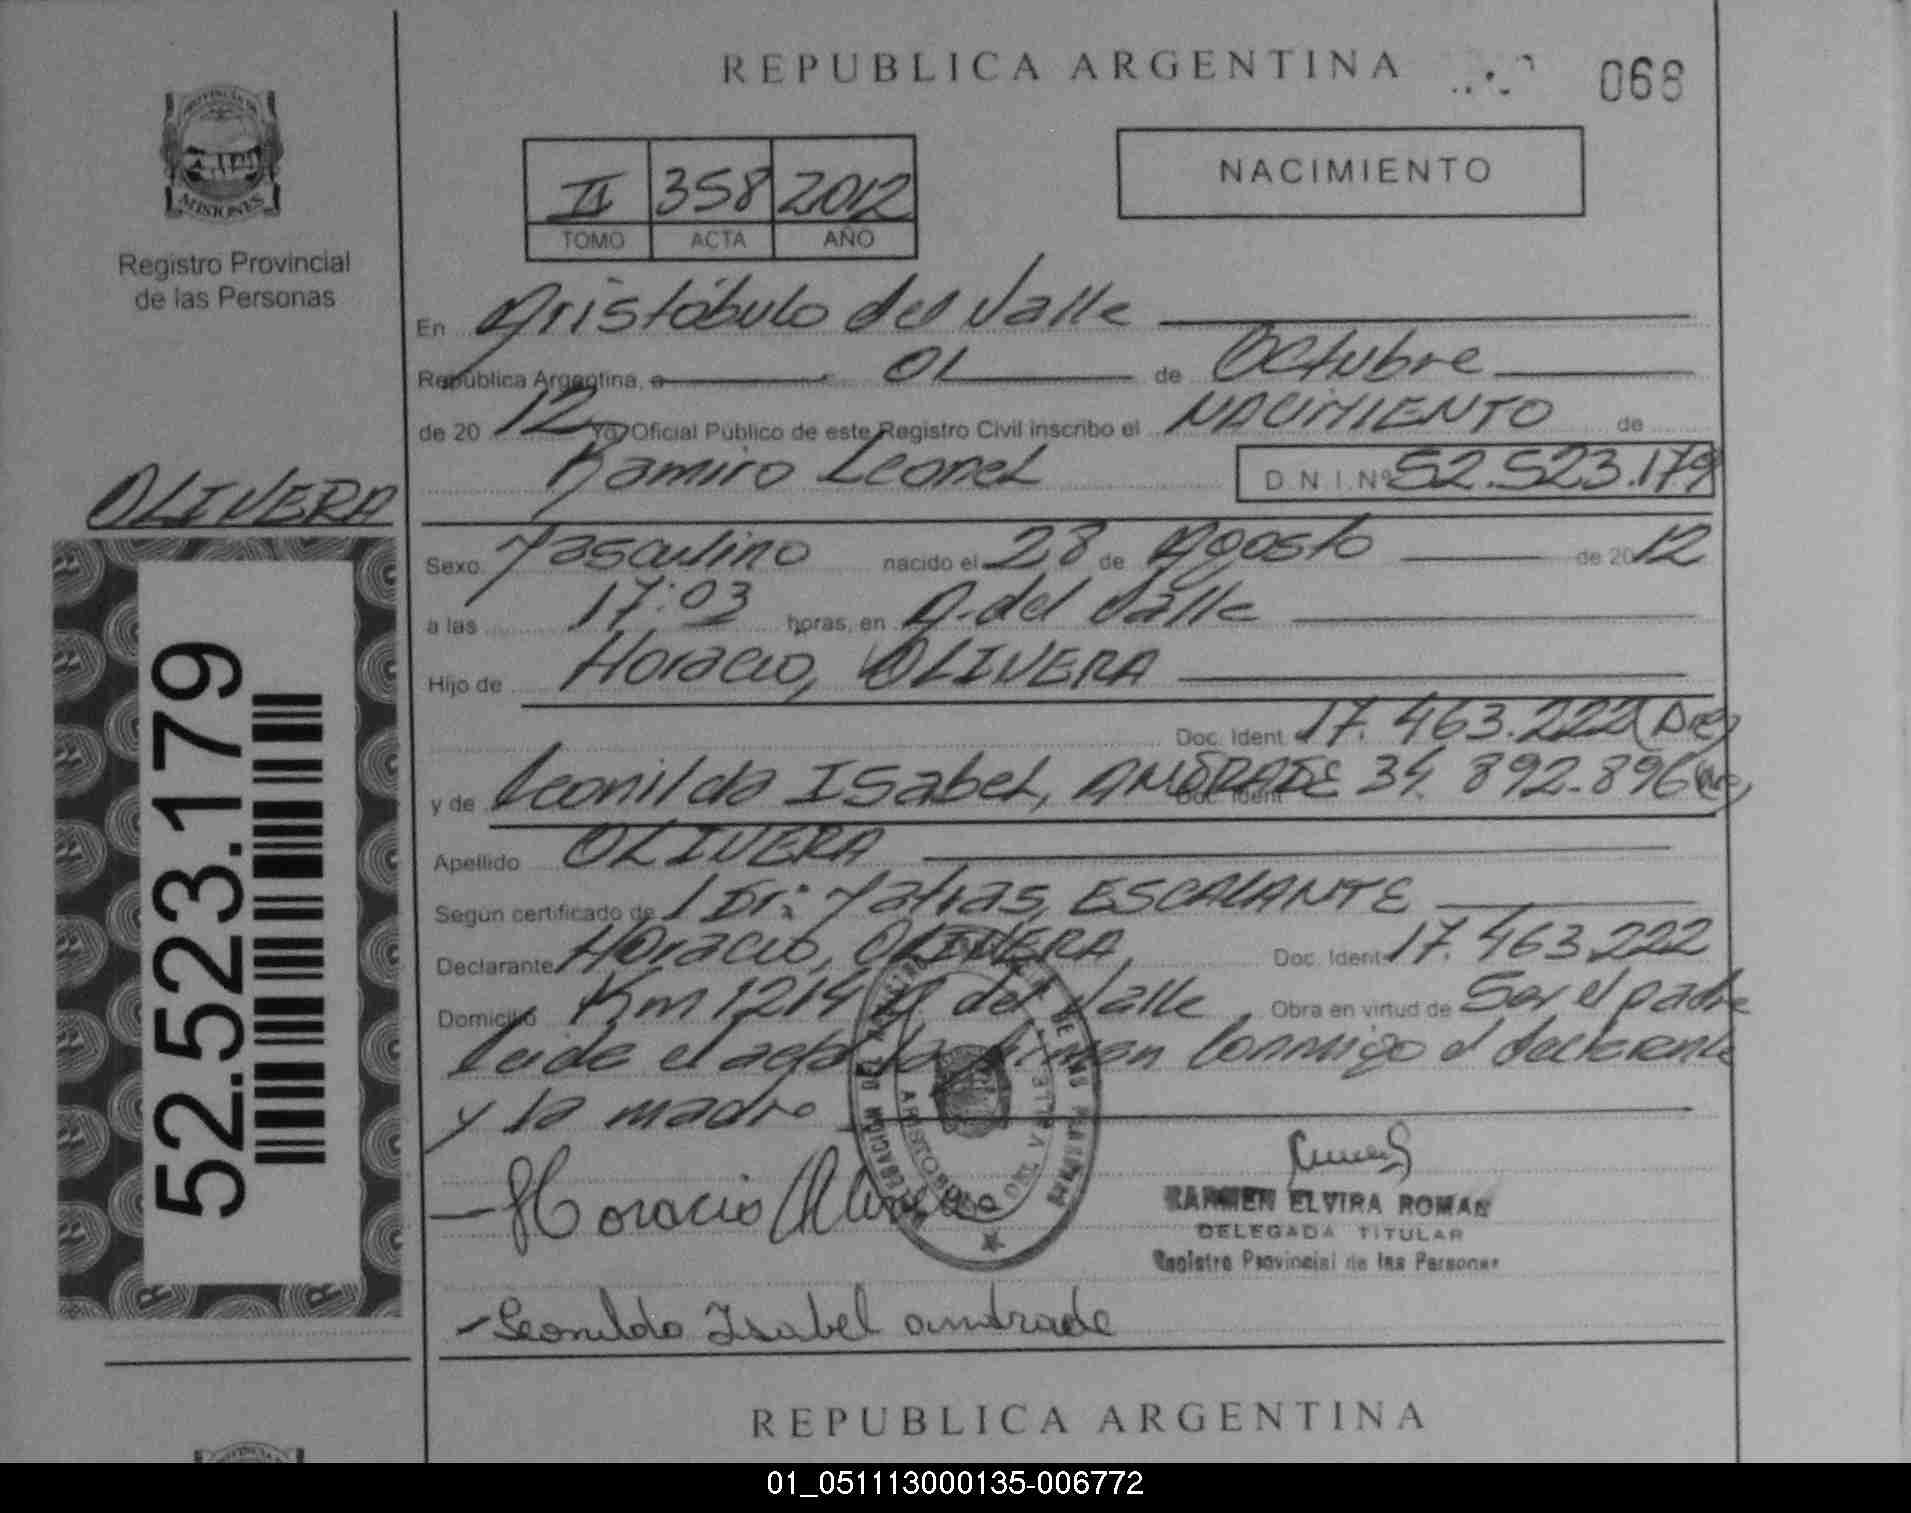 REPUBLICA ARGENTINA
068
PROVINCIA DE
MISIONES
Registro Provincial
de las Personas
NACIMIENTO
II 358 2012
TOMO ACTA AÑO
En Aristóbulo del Valle
República Argentina, a 01 de Octubre
de 20 12 Yo, Oficial Público de este Registro Civil inscribo el NACIMIENTO de
Ramiro Leonel D.N.I.Nº 52.523.179
OLIVERA
52.523.179
Sexo Masculino nacido el 28 de Agosto de 20 12
a las 17:03 horas, en A. del Valle
Hijo de Horacio, OLIVERA
Doc. Ident 17.463.222
y de Leonilda Isabel, ANDRADE Doc. Ident 34.892.896
Apellido OLIVERA
Según certificado de Dr: Matias, ESCALANTE
Declarante Horacio, OLIVERA, Doc. Ident 17.463.222
Domicilio Km 1214 A. del Valle, Obra en virtud de Ser el padre
Leida el acta la firman conmigo el declarante
y la madre
Horacio Olivera
KARMEN ELVIRA ROMAN
DELEGADA TITULAR
Registro Provincial de las Personas
Leonilda Isabel andrade
REPUBLICA ARGENTINA
01_051113000135-006772